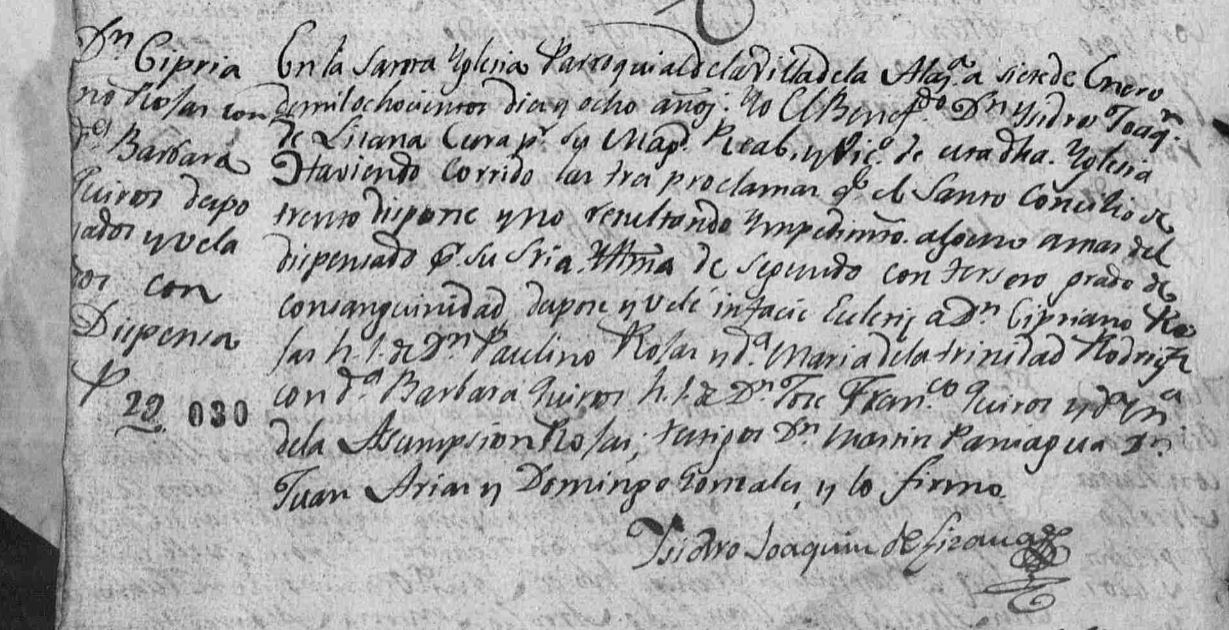 Dn Cipria
no Rosas con
Da Barbara
Quiros despo
sados y vela
dos con
Dispensa
P
29 030
En la Santa Yglesia Parroquial de la Villa de la Alajª. a siete de Enero
de mil ochocientos dies y ocho años: Yo El Benefdo Dn Ysidro Joaqn.
de Lisana Cura pr. Su Magd. Real, y Vico. de esta dha. Yglesia
Haviendo corrido las tres proclamas qe el Santo Concilio de
trento dispone y no resultando Ympedimto. alguno a mas del
dispensado pr. su Sria. Yltma de segundo con tersero grado de
consanguinidad despose y velé infacie Eclecis a Dn Cipriano Ro
sas h. l. de Dn Paulino Rosas y da. Maria de la trinidad Rodrigz
con da Barbara Quiros h. l. de Dn Jose Franco Quiros y da
de la Asumpsion Rosas; testigos Dn Martin Paniagua Dn
Juan Arias y Domingo Gonsales, y lo firmo
Ysidro Joaquin de Lizana